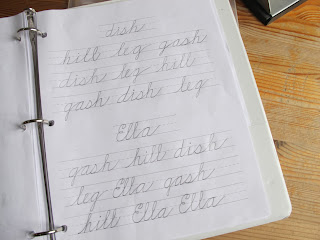 dish
hill leg gash
dish leg hill
gash dish leg
Ella
gash hill dish
leg Ella gash
hill Ella Ella